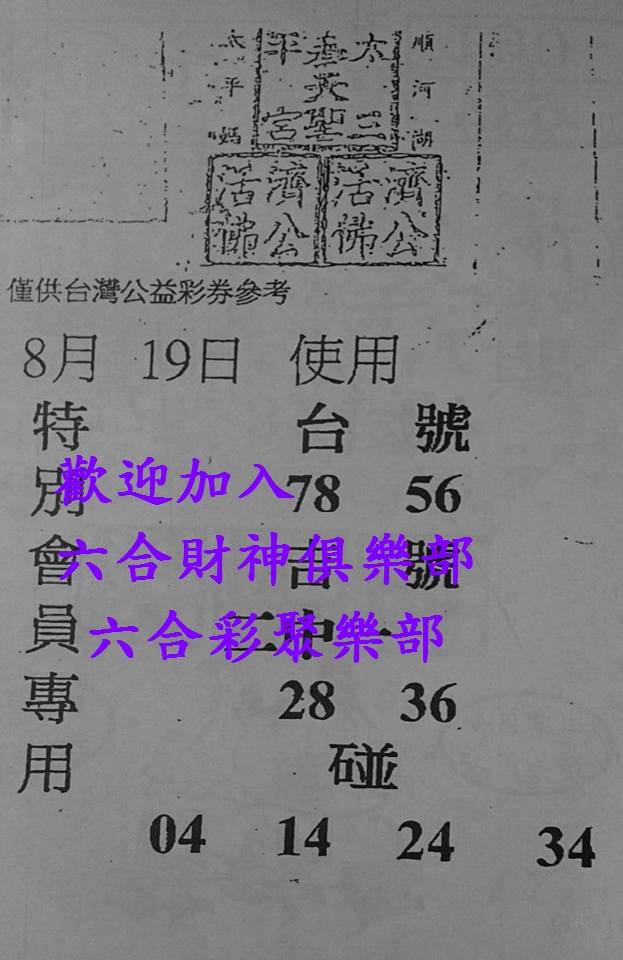 順河湖
太平媽
濟公活佛
濟公活佛
僅供台灣公益彩券參考
8月 19日 使用
特別會員專用
台 號
78 56
吉 號
二中一
28 36
碰
04 14 24 34
歡迎加入
六合財神俱樂部
六合彩聚樂部